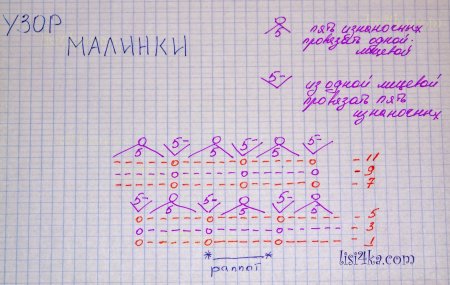 УЗОР
МАЛИНКИ
5 пять изнаночных
провязать одной
лицевой
5- из одной лицевой
провязать пять
изнаночных
5 5- 5 5- 5 5-
- 11
- 9
- 7
5- 5 5- 5 5- 5
- 5
- 3
- 1
* *
раппоt
lisi4ka.com